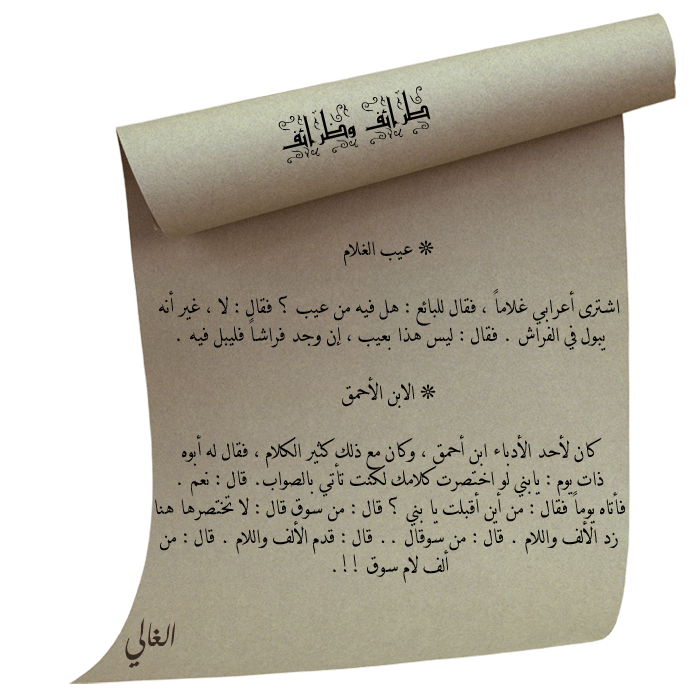 طرائف وظرائف
❊ عيب الغلام
اشترى أعرابي غلاماً ، فقال للبائع : هل فيه من عيب ؟ فقال : لا ، غير أنه
يبول في الفراش . فقال : ليس هذا بعيب ، إن وجد فراشاً فليبل فيه .
❊ الابن الأحمق
كان لأحد الأدباء ابن أحمق ، وكان مع ذلك كثير الكلام ، فقال له أبوه
ذات يوم : يابني لو اختصرت كلامك لكنت تأتي بالصواب. قال : نعم .
فأتاه يوماً فقال : من أين أقبلت يا بني ؟ قال : من سوق قال : لا تختصرها هنا
زد الألف واللام . قال : من سوقال . . قال : قدم الألف واللام . قال : من
ألف لام سوق !! .
الغالي